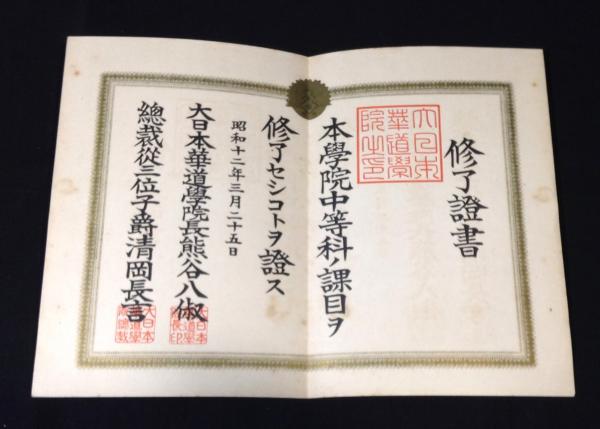 修了證書
本學院中等科ノ課目ヲ
修了セシコトヲ證ス
昭和十二年三月二十五日
大日本華道學院長熊谷八俶
總裁從三位子爵清岡長言
大日本
華道學
院之印
大日本
華道學
院長印
大日本
華道學
院總裁